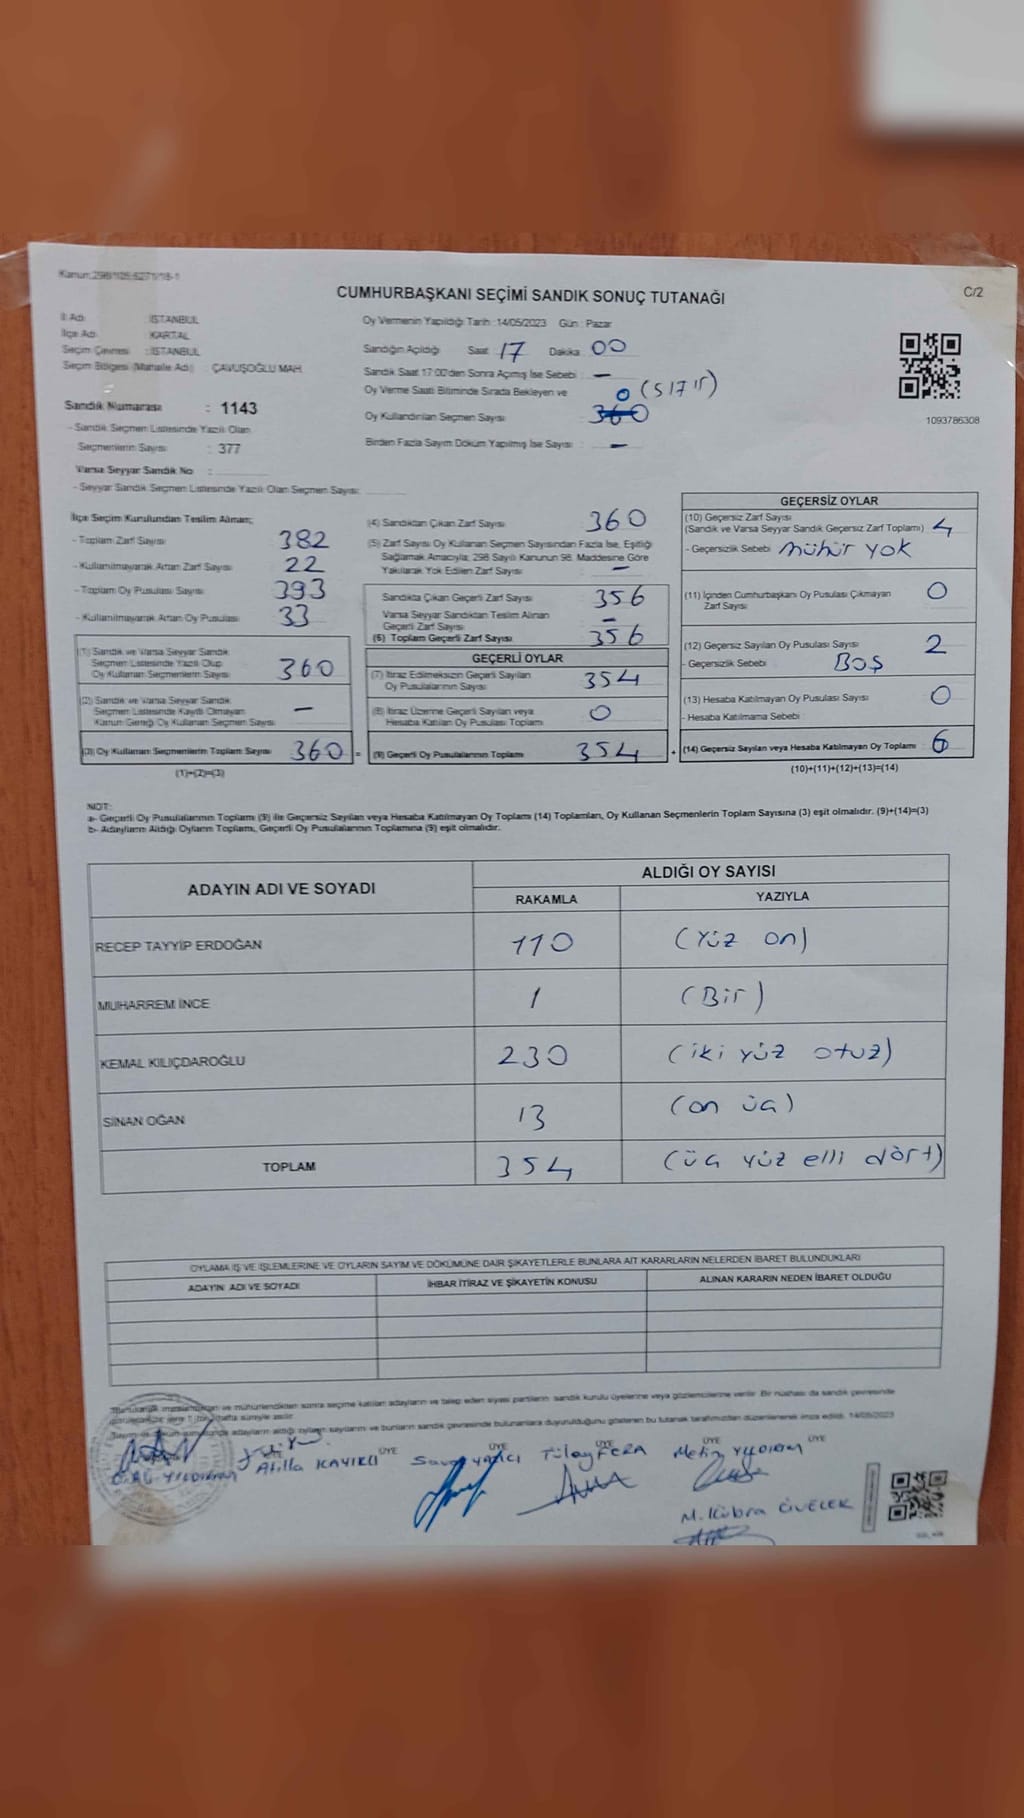 Kanun:298/105;6271/18-1
C/2
CUMHURBAŞKANI SEÇİMİ SANDIK SONUÇ TUTANAĞI
İl Adı : İSTANBUL
İlçe Adı : KARTAL
Seçim Çevresi : İSTANBUL
Seçim Bölgesi (Mahalle Adı) : ÇAVUŞOĞLU MAH.
Sandık Numarası : 1143
- Sandık Seçmen Listesinde Yazılı Olan
Seçmenlerin Sayısı : 377
Varsa Seyyar Sandık No :
- Seyyar Sandık Seçmen Listesinde Yazılı Olan Seçmen Sayısı:
Oy Vermenin Yapıldığı Tarih : 14/05/2023 Gün : Pazar
Sandığın Açıldığı Saat 17 Dakika 00
Sandık Saat 17:00'den Sonra Açımış İse Sebebi : –
Oy Verme Saati Bitiminde Sırada Bekleyen ve 0
Oy Kullandırılan Seçmen Sayısı 360
Birden Fazla Sayım Döküm Yapılmış İse Sayısı : –
1093786308
İlçe Seçim Kurulundan Teslim Alınan;
- Toplam Zarf Sayısı 382
- Kullanılmayarak Artan Zarf Sayısı 22
- Toplam Oy Pusulası Sayısı 393
- Kullanılmayarak Artan Oy Pusulası 33
(1) Sandık ve Varsa Seyyar Sandık
Seçmen Listesinde Yazılı Olup
Oy Kullanan Seçmenlerin Sayısı 360
(2) Sandık ve Varsa Seyyar Sandık
Seçmen Listesinde Kayıtlı Olmayan
Kanun Gereği Oy Kullanan Seçmen Sayısı –
(3) Oy Kullanan Seçmenlerin Toplam Sayısı 360 =
(1)+(2)=(3)
(4) Sandıktan Çıkan Zarf Sayısı 360
(5) Zarf Sayısı Oy Kullanan Seçmen Sayısından Fazla İse, Eşitliği
Sağlamak Amacıyla; 298 Sayılı Kanunun 98. Maddesine Göre
Yakılarak Yok Edilen Zarf Sayısı –
Sandıkta Çıkan Geçerli Zarf Sayısı 356
Varsa Seyyar Sandıktan Teslim Alınan
Geçerli Zarf Sayısı –
(6) Toplam Geçerli Zarf Sayısı 356
GEÇERLİ OYLAR
(7) İtiraz Edilmeksizin Geçerli Sayılan
Oy Pusulalarının Sayısı 354
(8) İtiraz Üzerine Geçerli Sayılan veya
Hesaba Katılan Oy Pusulası Toplamı 0
(9) Geçerli Oy Pusulalarının Toplamı 354 +
GEÇERSİZ OYLAR
(10) Geçersiz Zarf Sayısı
(Sandık ve Varsa Seyyar Sandık Geçersiz Zarf Toplamı) 4
- Geçersizlik Sebebi mühür yok
(11) İçinden Cumhurbaşkanı Oy Pusulası Çıkmayan
Zarf Sayısı 0
(12) Geçersiz Sayılan Oy Pusulası Sayısı 2
- Geçersizlik Sebebi BOŞ
(13) Hesaba Katılmayan Oy Pusulası Sayısı 0
- Hesaba Katılmama Sebebi
(14) Geçersiz Sayılan veya Hesaba Katılmayan Oy Toplamı : 6
(10)+(11)+(12)+(13)=(14)
NOT:
a- Geçerli Oy Pusulalarının Toplamı (9) ile Geçersiz Sayılan veya Hesaba Katılmayan Oy Toplamı (14) Toplamları, Oy Kullanan Seçmenlerin Toplam Sayısına (3) eşit olmalıdır. (9)+(14)=(3)
b- Adayların Aldığı Oyların Toplamı, Geçerli Oy Pusulalarının Toplamına (9) eşit olmalıdır.
ADAYIN ADI VE SOYADI
ALDIĞI OY SAYISI
RAKAMLA YAZIYLA
RECEP TAYYİP ERDOĞAN 110 (Yüz on)
MUHARREM İNCE 1 (Bir)
KEMAL KILIÇDAROĞLU 230 (iki yüz otuz)
SİNAN OĞAN 13 (on üç)
TOPLAM 354 (üç yüz elli dört)
OYLAMA İŞ VE İŞLEMLERİNE VE OYLARIN SAYIM VE DÖKÜMÜNE DAİR ŞİKAYETLERLE BUNLARA AİT KARARLARIN NELERDEN İBARET BULUNDUKLARI
ADAYIN ADI VE SOYADI İHBAR İTİRAZ VE ŞİKAYETİN KONUSU ALINAN KARARIN NEDEN İBARET OLDUĞU
ve mühürlendikten sonra seçime katılan adayların ve talep eden siyasi partilerin sandık kurulu üyelerine veya gözlemcilerine verilir. Bir nüshası da sandık çevresinde
hafta süreyle asılır.
adayların aldığı oyların sayılarını ve bunların sandık çevresinde bulunanlara duyurulduğunu gösteren bu tutanak tarafımızdan düzenlenerek imza edildi. 14/05/2023
ÜYE ÜYE ÜYE ÜYE ÜYE
YILDIRIM Atilla KAYIKLI YAZICI Tülay Metin YILDIRIM
M. Kübra CİVELEK